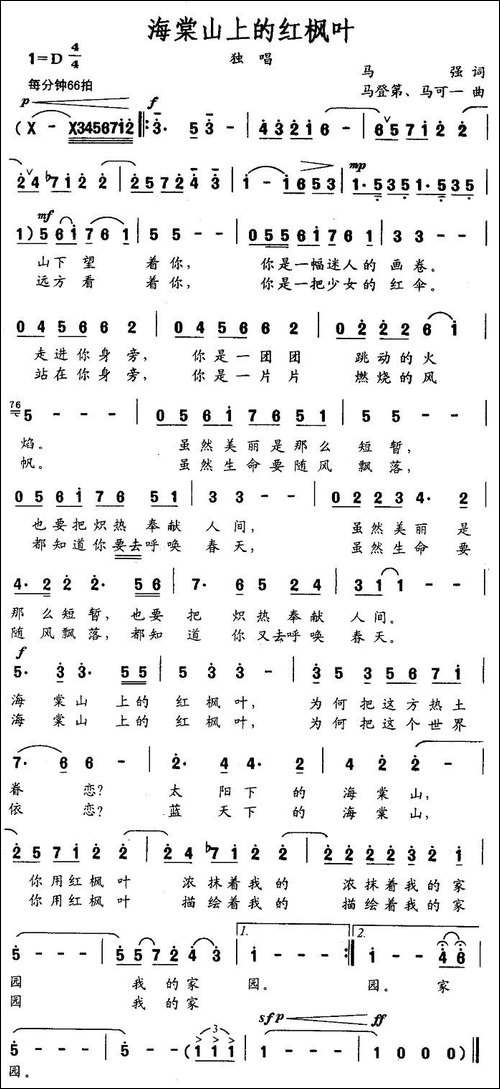 海棠山上的红枫叶
独唱
1=D 4/4
马强词
每分钟66拍
马登第、马可一曲
p f
(X - X34567i2 ‖: 3· 5 3 - | 4 3 2 i 6 - | 6 5 7 i 2 2 |
2 4 ♭7 i 2 2 | 2 5 7 2 4 3 | i - i 6 5 3 | 1· 5 3 5 1· 5 3 5 |
mp
mf
1) 5 6 i 7 6 1 | 5 5 - - | 0 5 5 6 i 7 6 1 | 3 3 - - |
山下望着你, 你是一幅迷人的画卷。
远方看着你, 你是一把少女的红伞。
0 4 5 6 6 2 | 0 4 5 6 6 2 | 0 2 2 2 6 i |
走进你身旁, 你是一团团 跳动的火
站在你身旁, 你是一片片 燃烧的风
76 5 - - - | 0 5 6 i 7 6 5 1 | 5 5 - - |
焰。 虽然美丽是那么短暂,
帆。 虽然生命要随风飘落,
0 5 6 i 7 6 5 1 | 3 3 - - | 0 2 2 3 4· 2 |
也要把炽热奉献人间, 虽然美丽是
都知道你要去呼唤春天, 虽然生命要
4· 2 2 2· 5 6 | 7· 6 5 2 4 | 3 1 1 - - |
那么短暂,也要把炽热奉献人间。
随风飘落,都知道你又去呼唤春天。
f
5· 3 3· 5 5 | 5 3 3 - | 3 5 3 5 6 7 i |
海棠山上的红枫叶, 为何把这方热土
海棠山上的红枫叶, 为何把这个世界
7· 6 6 - | 2· 4 4· 2 | 4 2 2 - |
眷恋? 太阳下的海棠山,
依恋? 蓝天下的海棠山,
2 5 7 i 2 2 | 2 4 ♭7 i 2 2 | 2 2 2 2 3 2 1 |
你用红枫叶 浓抹着我的 浓抹着我的家
你用红枫叶 描绘着我的 描绘着我的家
1. 2.
5 - - - | 5 5 7 2 4 3 | i - - - :‖ i - - 4 6 |
园 我的家园。 园。 家
园 我的家
sfp ff
5 - - - | 5 - - (i i i | i - - - | 1 0 0 0) ‖
3
园。